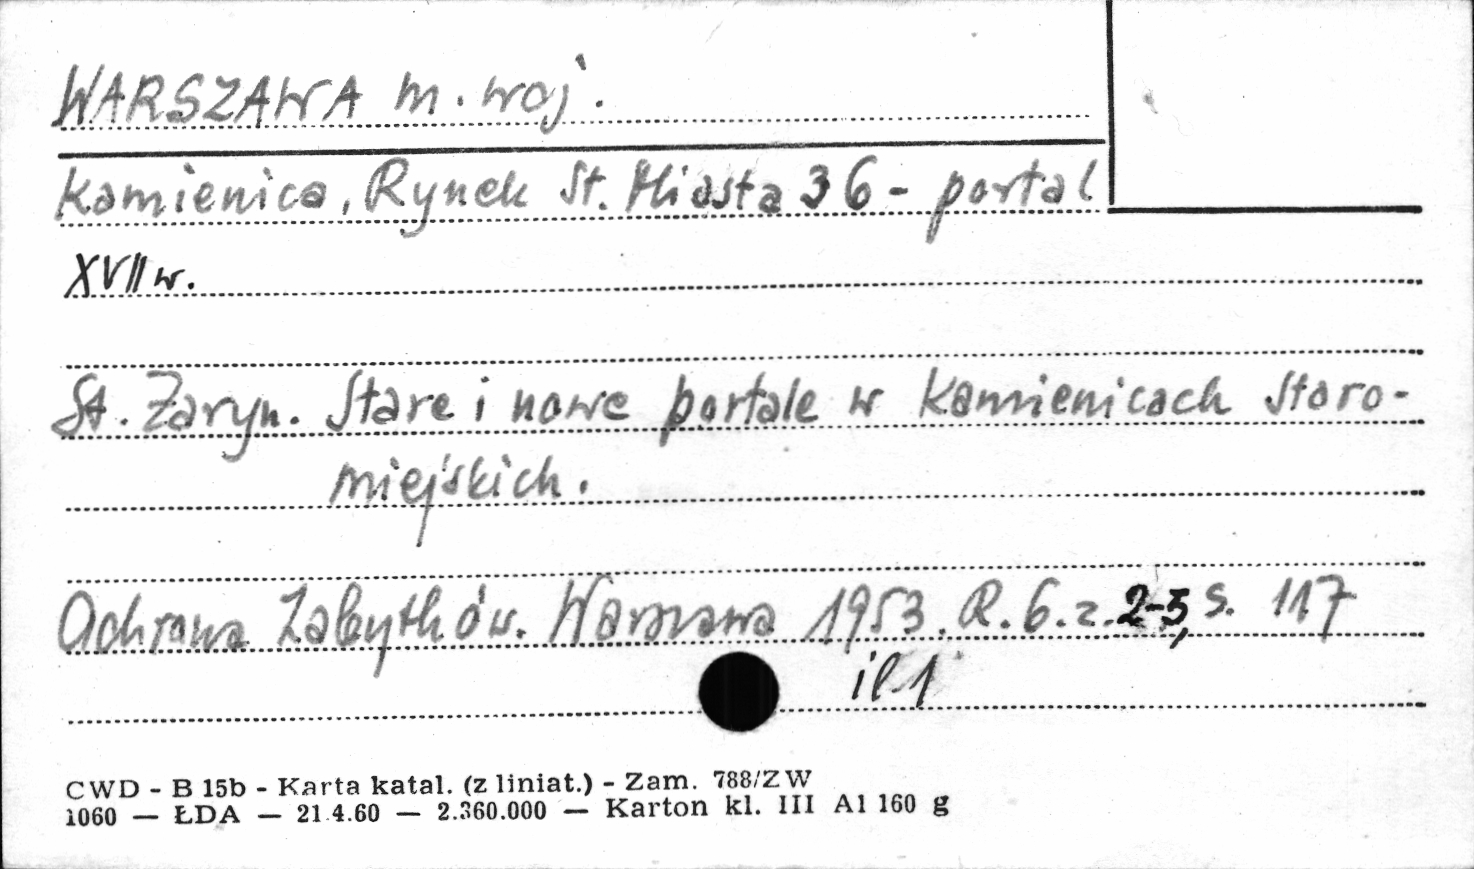 WARSZAWA m. woj.
Kamienica, Rynek St. Miasta 36 - portal
XVII w.
St. Żaryn. Stare i nowe portale w kamienicach staro-
miejskich.
Ochrona Zabytków. Warszawa 1953. R. 6. z. 2-3, s. 117
il 1
CWD - B 15b - Karta katal. (z liniat.) - Zam. 788/ZW
1060 — ŁDA — 21.4.60 — 2.360.000 — Karton kl. III A1 160 g